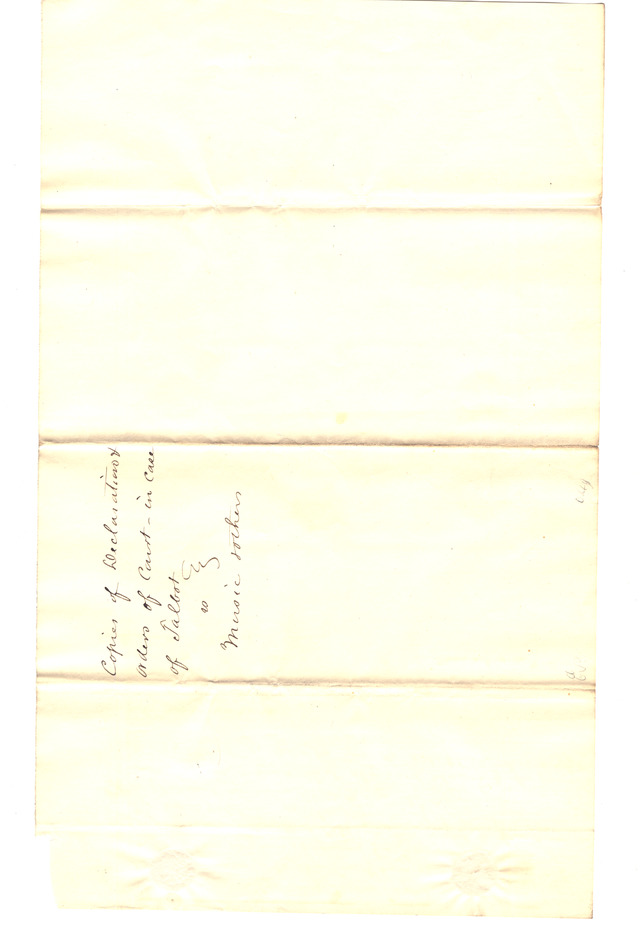 Copies of Declaration &
orders of Court - in Case
of Talbot
vs
Music & others